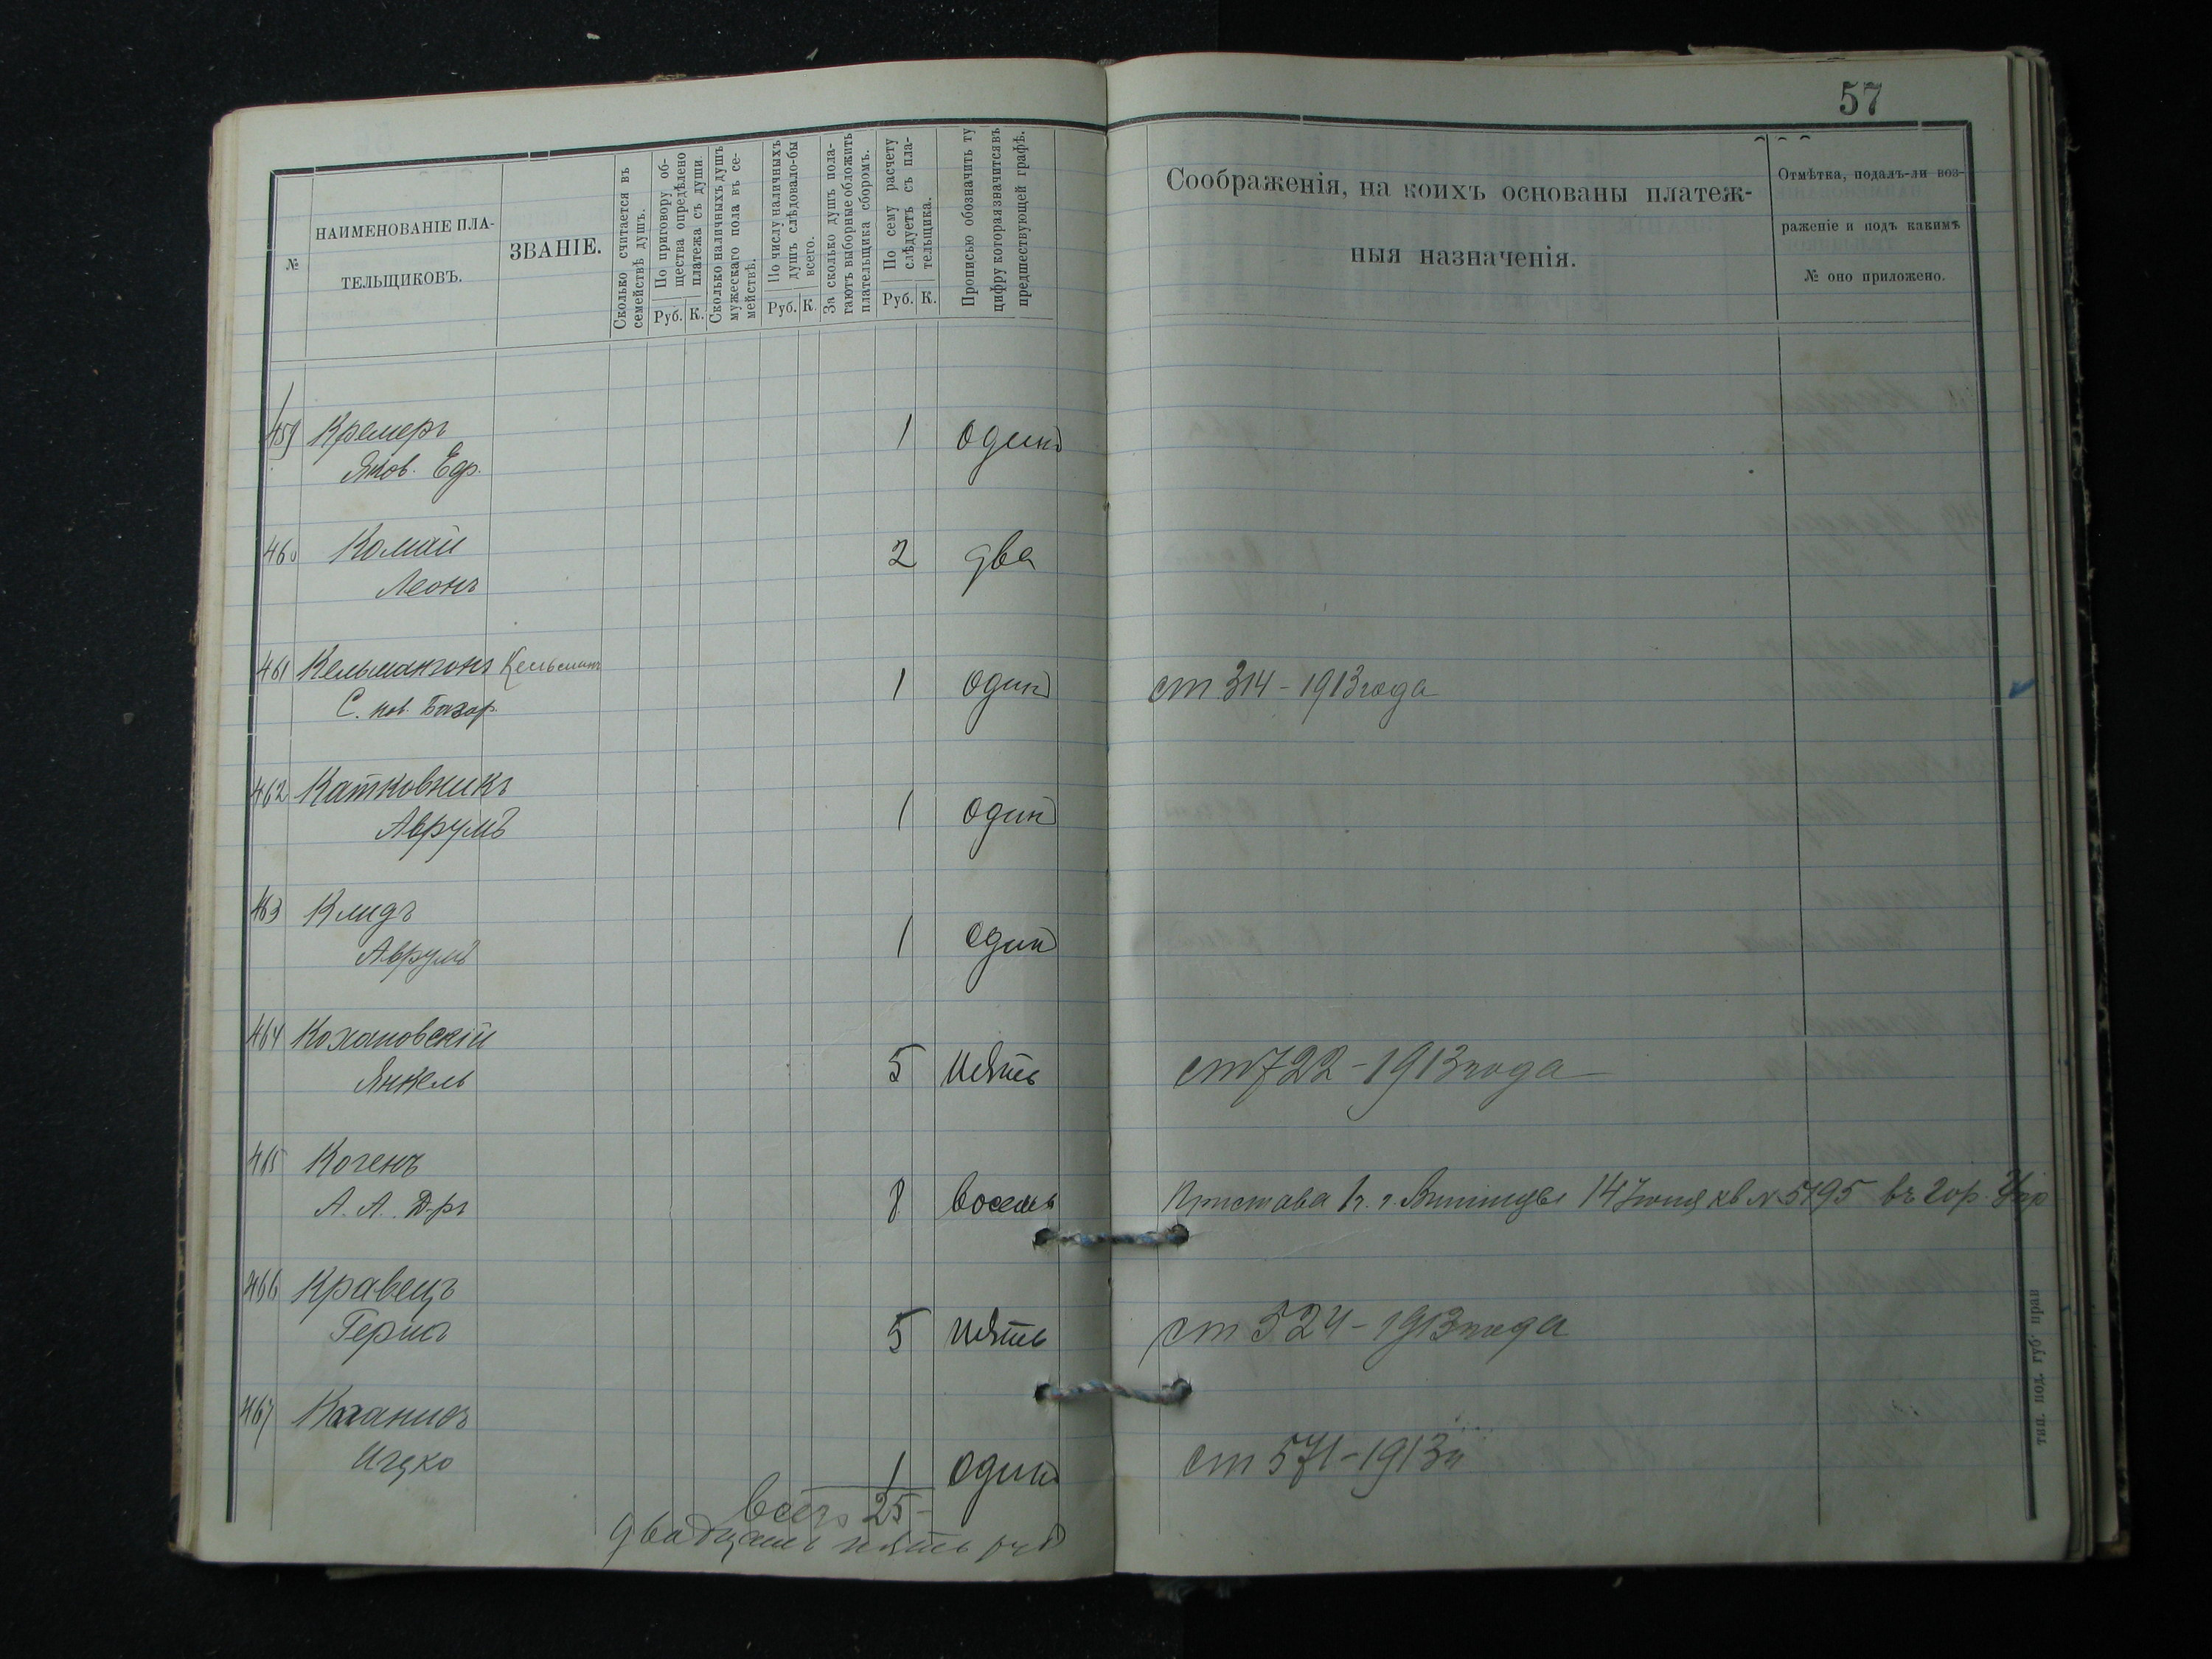 57
№
НАИМЕНОВАНІЕ ПЛА-
ТЕЛЬЩИКОВЪ.
ЗВАНІЕ.
Сколько считается въ
семействѣ душъ.
По приговору об-
щества опредѣлено
платежа съ души.
Руб. К.
Сколько наличныхъ душъ
мужескаго пола въ се-
мействѣ.
По числу наличныхъ
душъ слѣдовало-бы
всего.
Руб. К.
За сколько душъ пола-
гаютъ выборные обложить
плательщика сборомъ.
По сему расчету
слѣдуетъ съ пла-
тельщика.
Руб. К.
Прописью обозначить ту
цифру которая значится въ
предшествующей графѣ.
Соображенія, на коихъ основаны платеж-
ныя назначенія.
Отмѣтка, подалъ-ли воз-
раженіе и подъ какимъ
№ оно приложено.
459 Кремеръ
Яков. Ефр.
1 одинъ
460 Комай
Леонъ
2 два
461 Кельманзонъ Кельманъ
С. нов. Базар.
1 одинъ
ст 314 - 1913 года
462 Катковникъ
Аврумъ
1 одинъ
463 Клидъ
Аврумъ
1 одинъ
464 Кохановскій
Янкель
5 пять
ст 722 - 1913 года
465 Когенъ
А. А. Д-ръ
8 восемь
Пристава 1 ч. г. Винницы 14 Іюня № 5195 въ Гор. Упр
466 Кравецъ
Герш
5 пять
ст 524 - 1913 года
467
Ицко
1 одинъ
ст 571 - 1913 г
всего 25 -
двадцать пять руб
тип. под. губ. прав